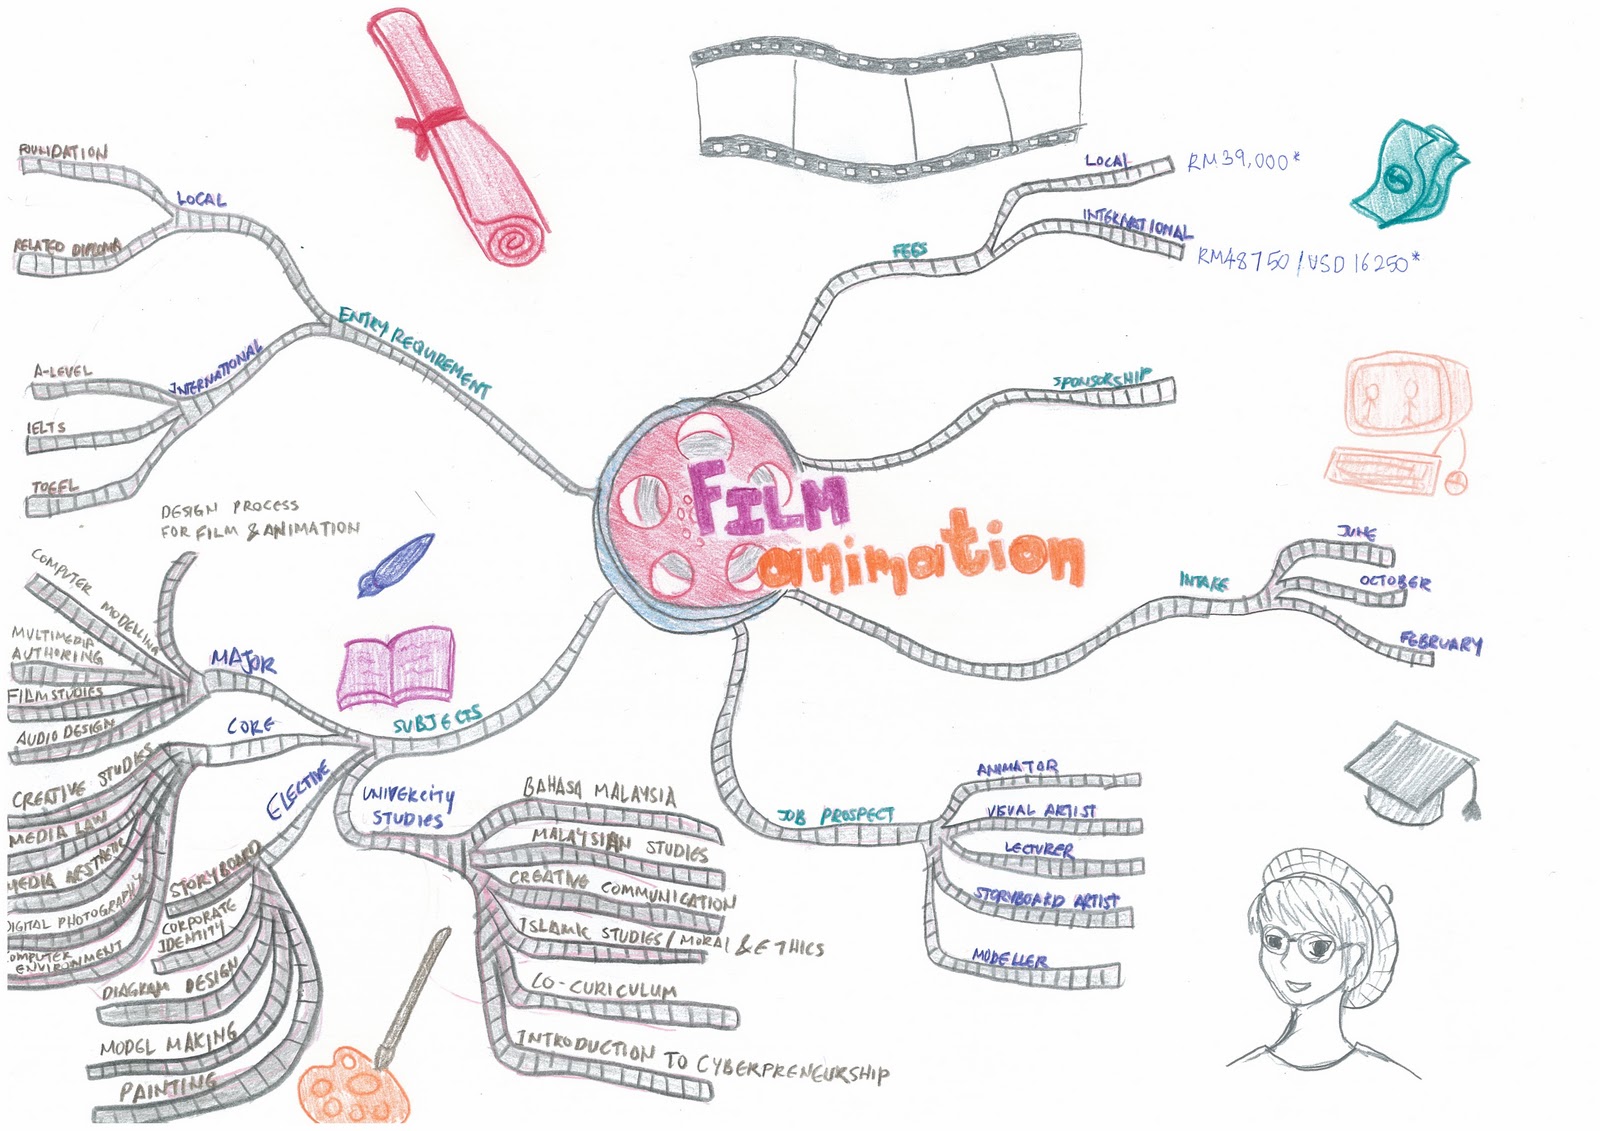 FILM
animation
ENTRY REQUIREMENT
LOCAL
FOUNDATION
RELATED DIPLOMA
INTERNATIONAL
A-LEVEL
IELTS
TOEFL
FEES
LOCAL
RM39,000*
INTERNATIONAL
RM48750/USD16250*
SPONSORSHIP
INTAKE
JUNE
OCTOBER
FEBRUARY
JOB PROSPECT
ANIMATOR
VISUAL ARTIST
LECTURER
STORYBOARD ARTIST
MODELLER
SUBJECTS
MAJOR
DESIGN PROCESS
FOR FILM & ANIMATION
COMPUTER MODELLING
MULTIMEDIA
AUTHORING
FILM STUDIES
AUDIO DESIGN
CORE
CREATIVE STUDIES
MEDIA LAW
MEDIA AESTHETICS
DIGITAL PHOTOGRAPHY
COMPUTER
ENVIRONMENT
ELECTIVE
STORYBOARD
CORPORATE
IDENTITY
DIAGRAM DESIGN
MODEL MAKING
PAINTING
UNIVERCITY
STUDIES
BAHASA MALAYSIA
MALAYSIAN STUDIES
CREATIVE COMMUNICATION
ISLAMIC STUDIES/MORAL & ETHICS
CO-CURICULUM
INTRODUCTION TO CYBERPRENEURSHIP